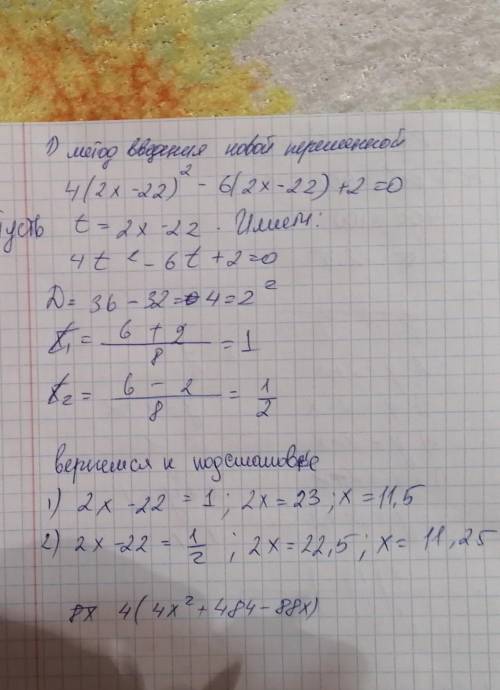 1) метод введения новой переменной
4(2x-22)² - 6(2x-22)+2=0
Пусть t = 2x-22. Имеем:
4t² - 6t+2=0
D= 36-32=4=2²
t₁ = (6+2)/8 = 1
t₂ = (6-2)/8 = 1/2
вернемся к подстановке
1) 2x-22=1; 2x=23; x=11,5
2) 2x-22=1/2; 2x=22,5; x=11,25
8x 4(4x²+484-88x)